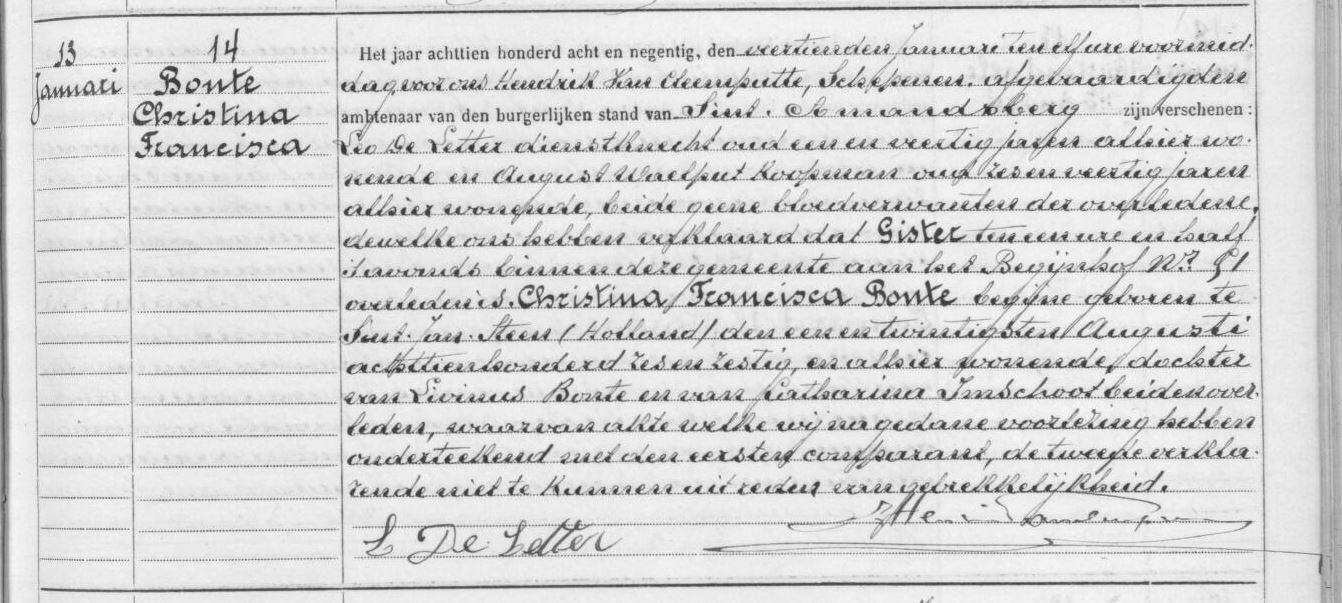 13
Januari
14
Bonte
Christina
Francisca
Het jaar achttien honderd acht en negentig, den veertienden Januari ten elf ure voormid-
dag voor ons Hendrik Van Cleemputte, Schepenen, afgevaardigden
ambtenaar van den burgerlijken stand van Sint-Amandsberg zijn verschenen :
Leo De Letter dienstknecht oud een en veertig jaren alhier wo-
nende en August Waelput Koopman oud zes en veertig jaren
alhier wonende, beide geene bloedverwanten der overledene,
dewelke ons hebben verklaard dat Gister ten een ure en half
's avonds binnen deze gemeente aan het Begijnhof Nr 51
overleden is. Christina Francisca Bonte begijne geboren te
Sint-Jan-Steen (Holland) den een en twintigsten Augusti
achttienhonderd zes en zestig, en alhier wonende, dochter
van Livinus Bonte en van Catharina Imschoot beiden over-
leden, waarvan akte welke wij na gedane voorlezing hebben
onderteekend met den eersten comparant, de tweede verkla-
rende niet te kunnen uit reden van gebrekkelijkheid.
L De Letter